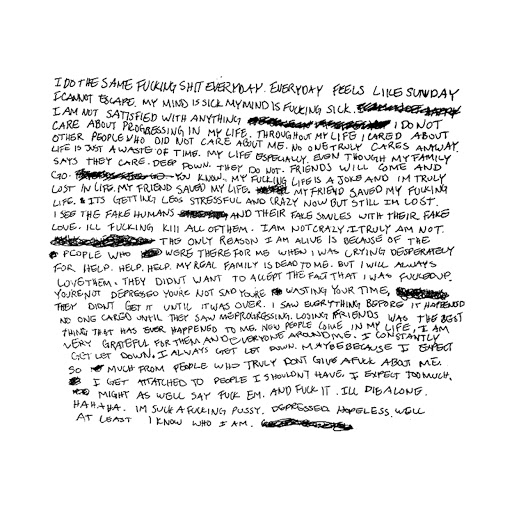 I DO THE SAME FUCKING SHIT EVERYDAY. EVERYDAY FEELS LIKE SUNDAY
I CANNOT ESCAPE. MY MIND IS SICK MY MIND IS FUCKING SICK.
I AM NOT SATISFIED WITH ANYTHING I DO NOT
CARE ABOUT PROGRESSING IN MY LIFE. THROUGHOUT MY LIFE I CARED ABOUT
OTHER PEOPLE WHO DID NOT CARE ABOUT ME. NO ONE TRULY CARES ANYWAY.
LIFE IS JUST A WASTE OF TIME. MY LIFE ESPECIALLY. EVEN THOUGH MY FAMILY
SAYS THEY CARE. DEEP DOWN. THEY DO NOT. FRIENDS WILL COME AND
GO. YOU KNOW. MY FUCKING LIFE IS A JOKE AND IM TRULY
LOST IN LIFE. MY FRIEND SAVED MY LIFE. MY FRIEND SAVED MY FUCKING
LIFE. & ITS GETTING LESS STRESSFUL AND CRAZY NOW BUT STILL IM LOST.
I SEE THE FAKE HUMANS AND THEIR FAKE SMILES WITH THEIR FAKE
LOVE. ILL FUCKING KILL ALL OF THEM. I AM NOT CRAZY I TRULY AM NOT.
THE ONLY REASON I AM ALIVE IS BECAUSE OF THE
PEOPLE WHO WERE THERE FOR ME WHEN I WAS CRYING DESPERATELY
FOR HELP. HELP. HELP. MY REAL FAMILY IS DEAD TO ME. BUT I WILL ALWAYS
LOVE THEM. THEY DIDNT WANT TO ACCEPT THE FACT THAT I WAS FUCKED UP.
YOURE NOT DEPRESSED YOURE NOT SAD YOURE WASTING YOUR TIME,
THEY DIDNT GET IT UNTIL IT WAS OVER. I SAW EVERYTHING BEFORE IT HAPPENED
NO ONE CARED UNTIL THEY SAW ME PROGRESSING. LOSING FRIENDS WAS THE BEST
THING THAT HAS EVER HAPPENED TO ME. NEW PEOPLE COME IN MY LIFE, I AM
VERY GRATEFUL FOR THEM AND EVERYONE AROUND ME. I CONSTANTLY
GET LET DOWN. I ALWAYS GET LET DOWN. MAYBE BECAUSE I EXPECT
SO MUCH FROM PEOPLE WHO TRULY DONT GIVE A FUCK ABOUT ME.
I GET ATTACHED TO PEOPLE I SHOULDN'T HAVE. I EXPECT TOO MUCH.
MIGHT AS WELL SAY FUCK EM. AND FUCK IT. ILL DIE ALONE.
HAHAHA. IM SUCH A FUCKING PUSSY. DEPRESSED. HOPELESS. WELL
AT LEAST I KNOW WHO I AM.